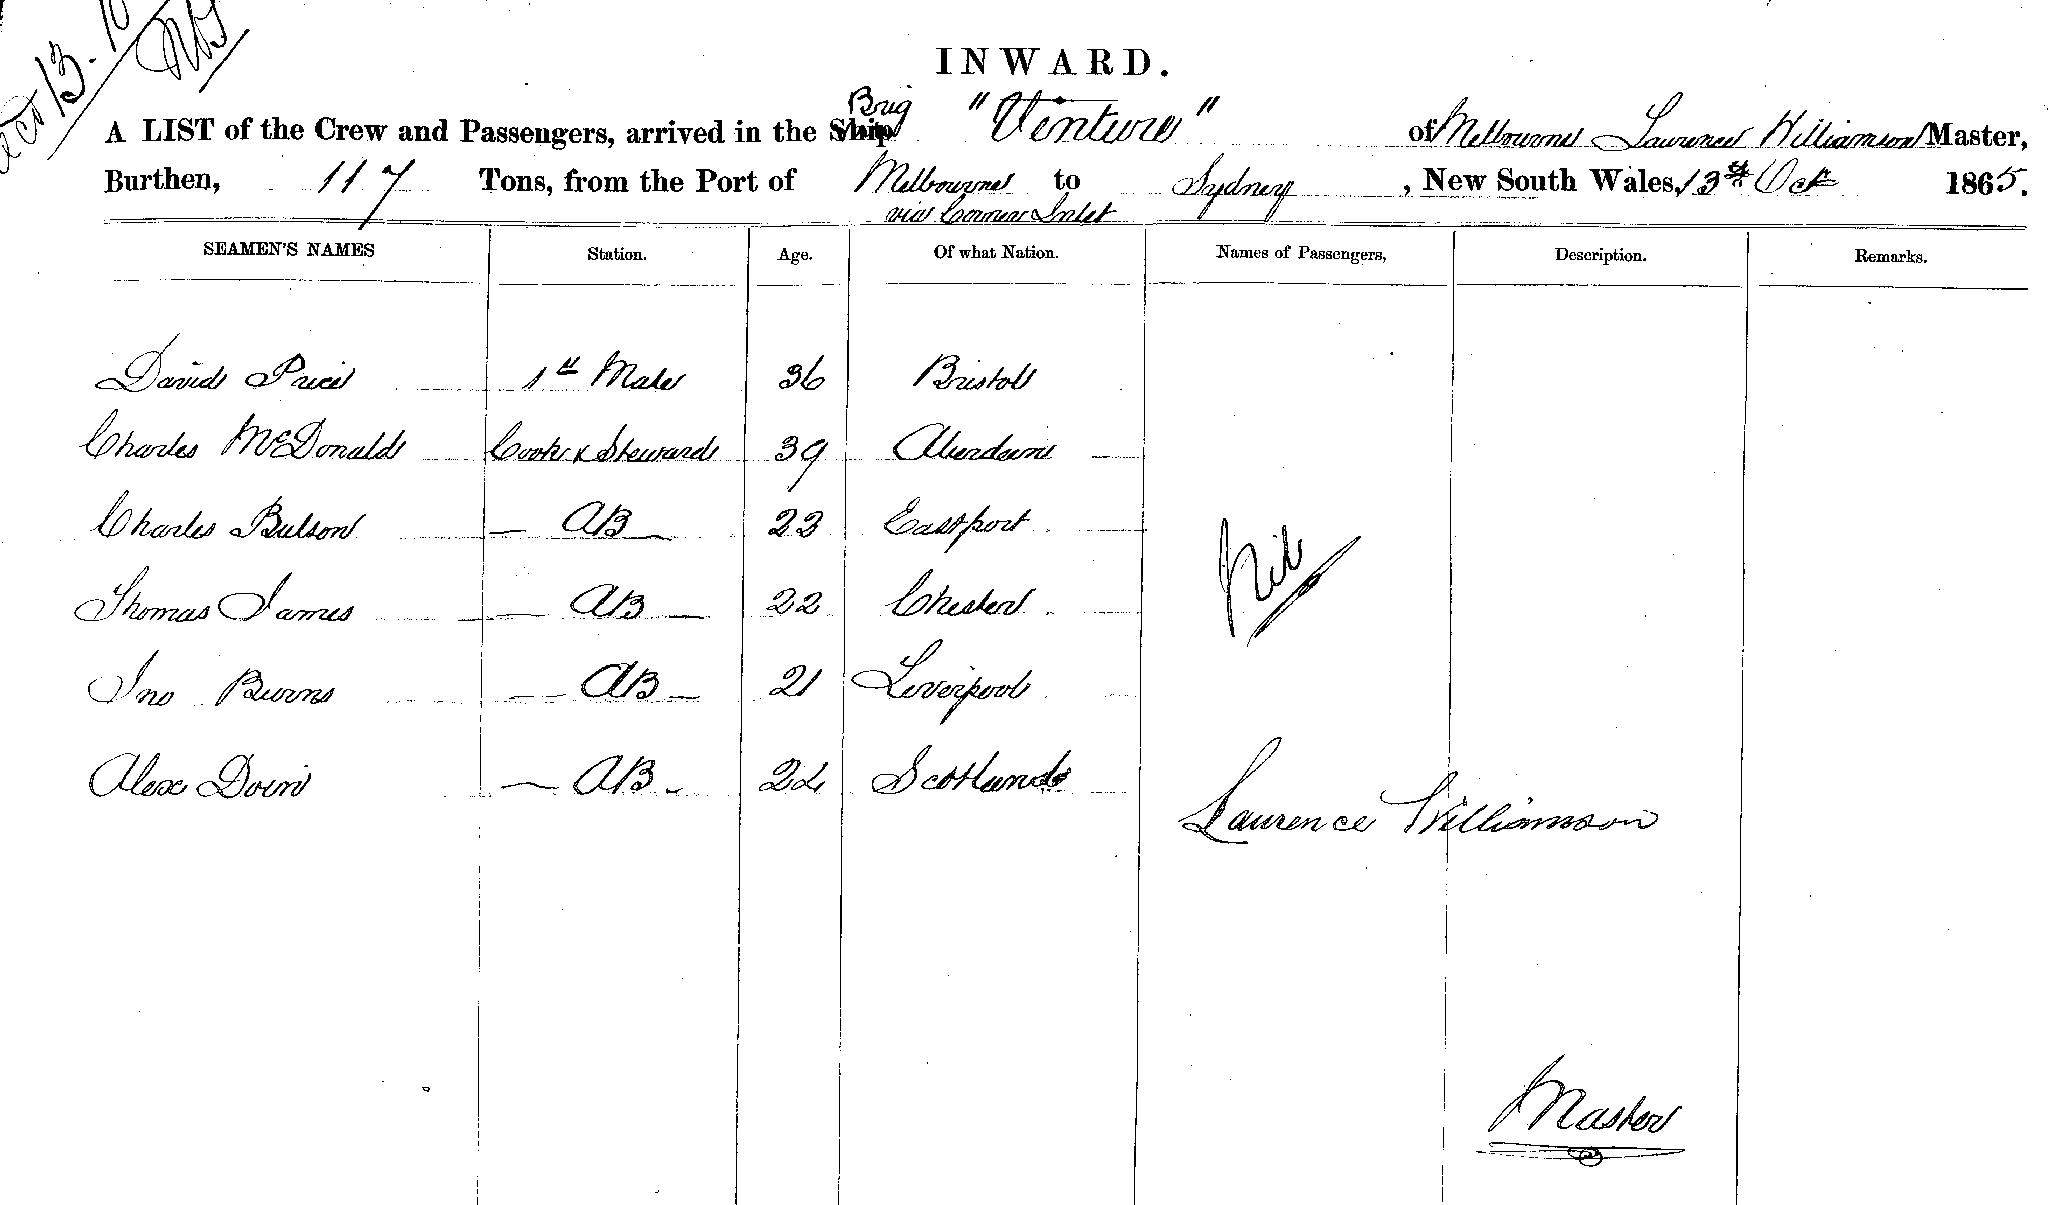 13. 10
INWARD.
A LIST of the Crew and Passengers, arrived in the Ship Brig "Venture" of Melbourne Laurence Williamson Master,
Burthen, 117 Tons, from the Port of Melbourne to Sydney, New South Wales, 13th Oct 1865.
via Corner Inlet
SEAMEN'S NAMES Station. Age. Of what Nation. Names of Passengers, Description. Remarks.
David Price 1st Mate 36 Bristol
Charles McDonald Cook & Steward 39 Aberdeen
Charles Bulson AB 23 Eastport
Thomas James AB 22 Chester
Jno Burns AB 21 Liverpool
Alex AB 22 Scotland
Nil
Laurence Williamson
Master